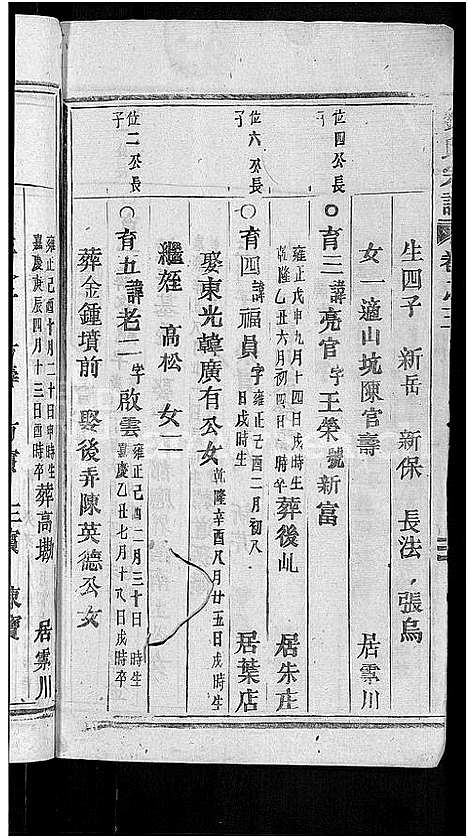 生四子　新岳　新保　長法　張烏
女一適山坑陳官壽　居霅川
位四公長子
育三諱亮官字玉榮號新富
雍正戊申九月十四日戌時生
乾隆乙丑六月初四日時卒葬後乢　居朱庄
位六公長子
育四諱福員字雍正己酉二月初八日戌時生　居葉店
娶東光韓廣有公女乾隆辛酉八月廿五日戌時生
繼姪　高松　女二
位二公長子
育五諱老二字啟雲雍正己酉二月三十日時生
嘉慶乙丑七月十八日戌時卒
葬金鍾墳前　娶後弄陳英德公女
雍正己酉十月二十日申時生
嘉慶庚辰四月十三日酉時卒葬高墈　居霅川